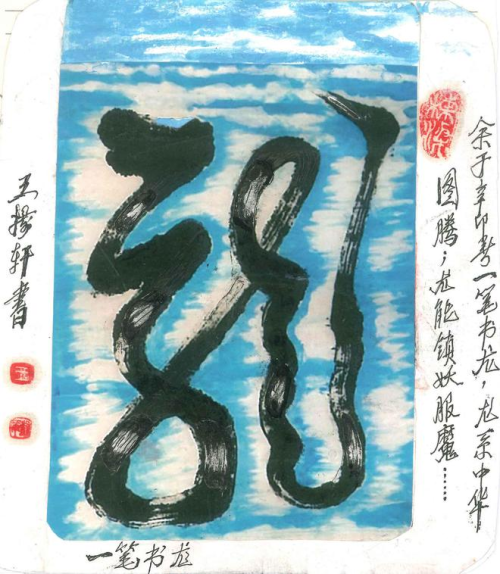 余于辛卯书一笔书龙,龙系中华
图腾;龙能镇妖服魔……
龙
王扬轩书
一笔书龙